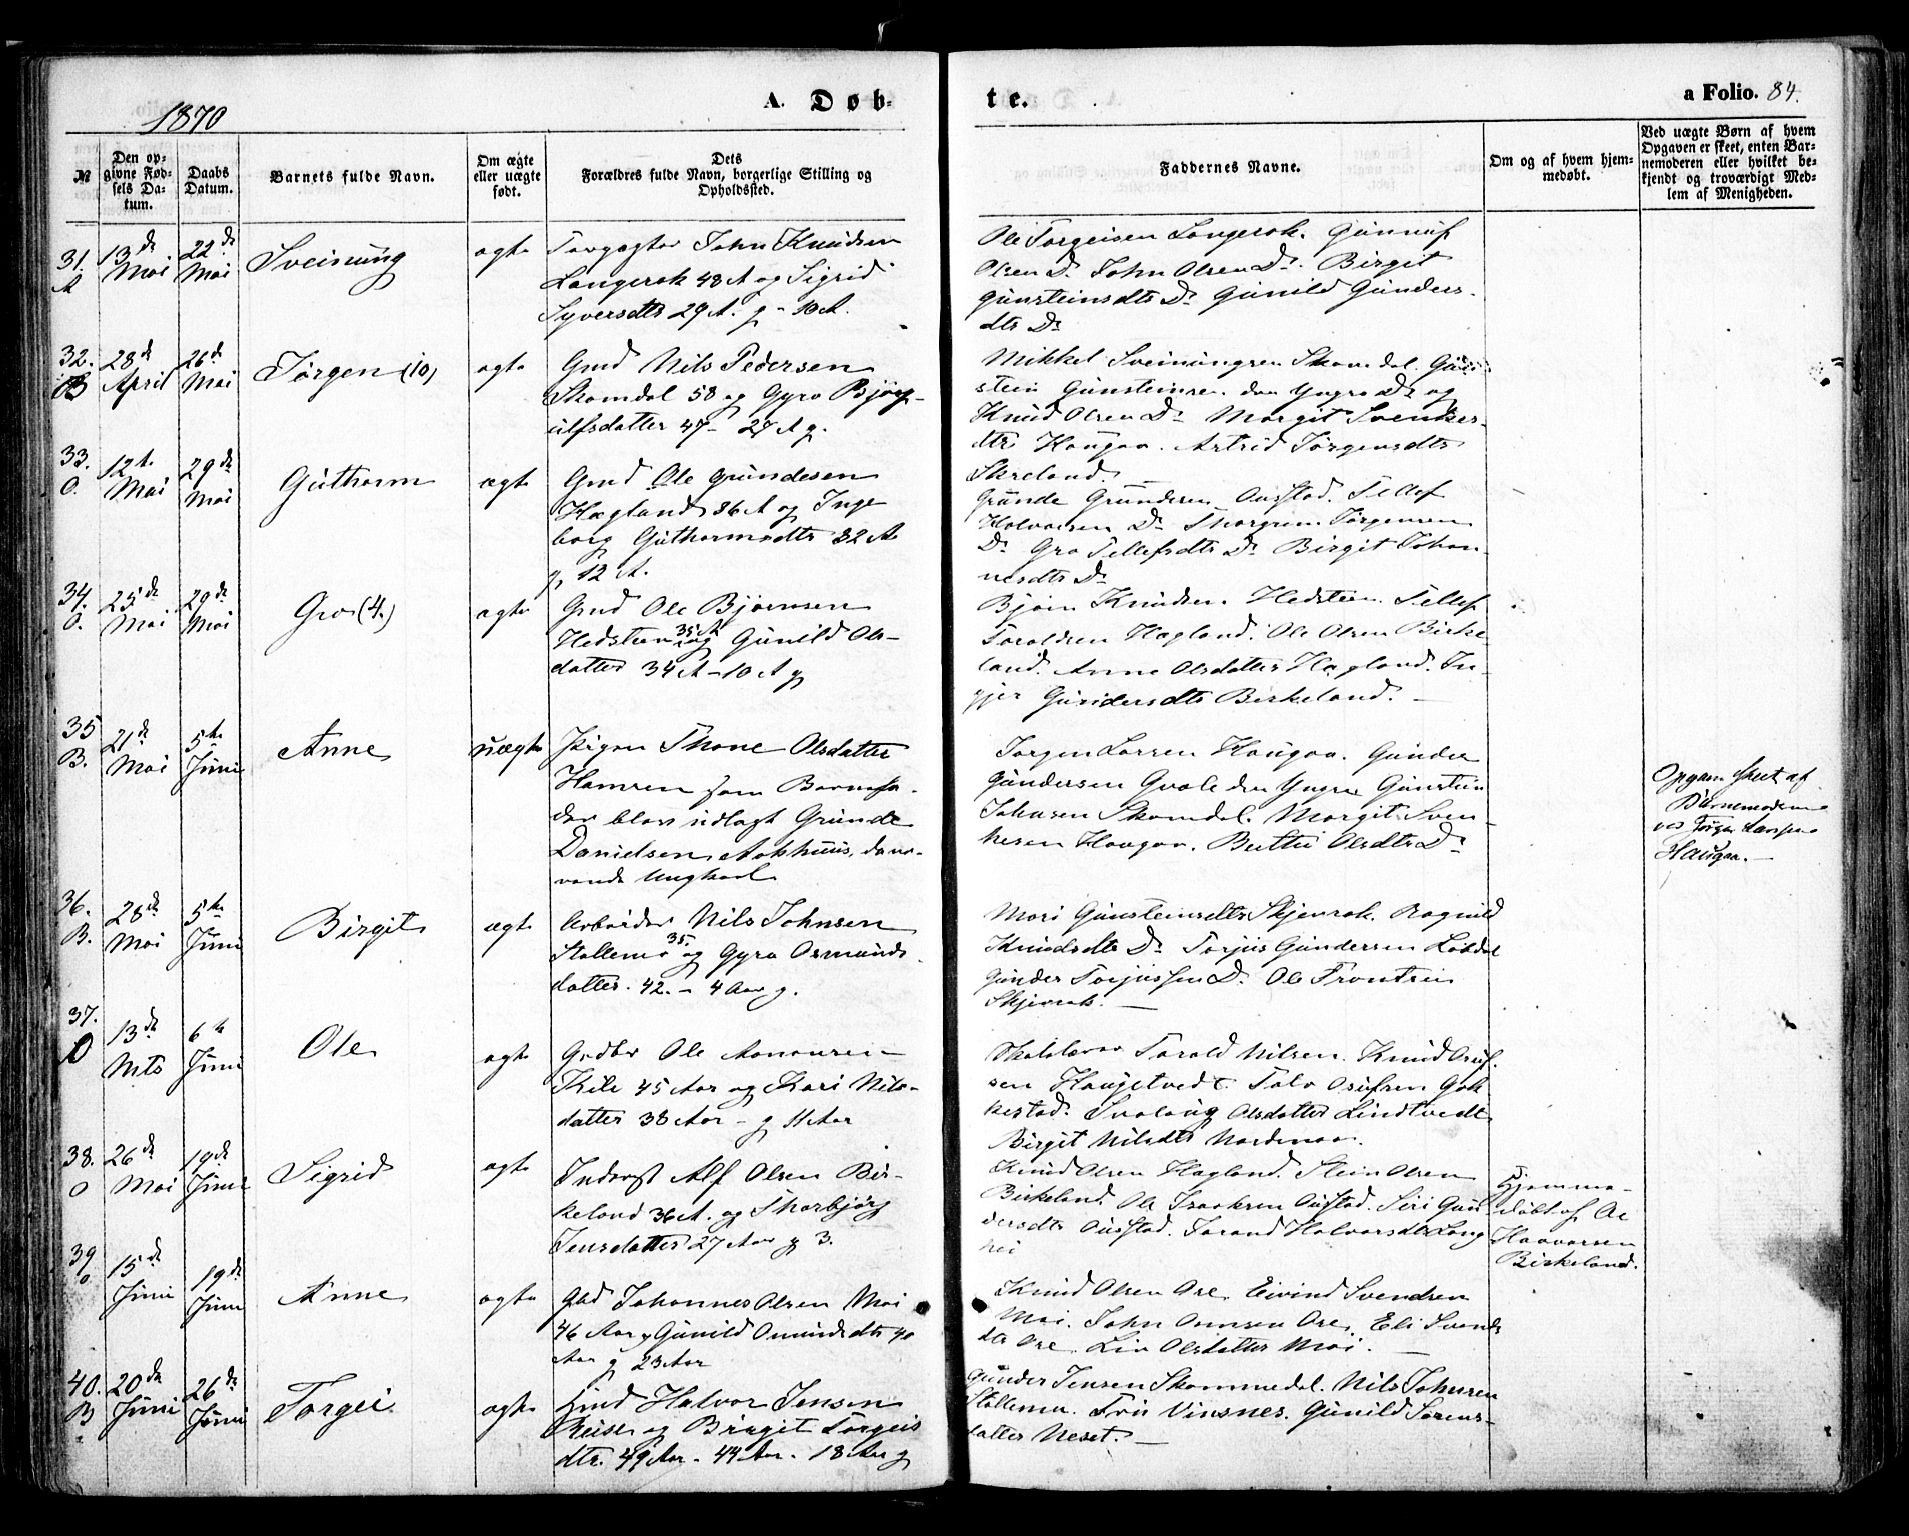 1870
A. Døb-
te.
a Folio. 84.
№
Den op-
givne Fød-
sels Da-
tum.
Daabs
Datum.
Barnets fulde Navn.
Om ægte
eller uægte
født.
Dets
Forældres fulde Navn, borgerlige Stilling og
Opholdssted.
Faddernes Navne.
Om og af hvem hjem-
medøbt.
Ved uægte Børn af hvem
Opgaven er skeet, enten Bar-
nemoderen eller hvilket be-
kjendt og troværdigt Med-
lem af Menigheden.
31. A
13de Mai
22de Mai
Sveinung
ægte
John Knudsen
Langerak 48 A og Sigrid
Syversdtr 29 A. g - 10 A.
Ole Torgeisen Langerak. Gunnuf
Olsen Do John Olsen Do. Birgit
Gunsteinsdtr Do Gunild Gunders-
dtr Do
32. B
28de April
26de Mai
Jørgen (10)
ægte
Gmd Nils Pedersen
Skomdal 58 og Gyro Bjørg-
ulfsdatter 47 - 27 A g.
Mikkel Sveinungsen Skomdal. Gun-
stein Gunsteinsen den Yngre Do og
Knud Olsen Do Margit Svenkes-
dtr Haugaa. Astrid Jørgensdtr
Skreland.
33. O.
12te Mai
29de Mai
Guthorm
ægte
Gmd Ole Grundesen
Hægland 36 A og Inge
borg Guthormsdtr 32 A
g, 12 A.
Grunde Grundesen Austad. Tellef
Halvorsen Do Thorgrim Jørgensen
Do Gro Tellefsdtr Do Birgit Johan-
nesdtr Do
34. O.
25de Mai
29de Mai
Gro (4.)
ægte
Gmd Ole Bjørnsen
Hedsteen 35 A og Gunild Ols-
datter 34 A - 10 A g
Bjørn Knudsen Hedsteen. Tellef
Taraldsen Hægland. Ole Olsen Birke-
land. Anne Olsdatter Hægland. In-
gjer Gundersdtr Birkeland. -
35 B.
21de Mai
5te Juni
Anne
uægte
Pigen Thone Olsdatter
Hamren som Barnefa-
der blev udlagt Grunde
Danielsen Aakhuus, dava-
rende Ungkarl
Jørgen Larsen Haugaa. Gunder
Gundersen Qvale den Yngre Gunstein
Johnsen Skomdal. Margit Sven-
kesen Haugaa. Berthe Olsdtr Do
Opgaven skeet af
Barnemoderen
ved Jørgen Larsen
Haugaa. -
36. B.
28de Mai
5te Juni
Birgit
ægte
Arbeider Nils Johnsen
Stallemo 35. og Gyro Osmunds-
datter. 42. - 4 Aar g.
Mari Gunsteinsdtr Skjerrak. Ragnild
Knudsdtr Do Torjus Gundersen Løbdal
Gunder Torjussen Do. Ole Trontsen
Skjerrak. -
37. O
13de Mts
6te Juni
Ole
ægte
Ole Aanonsen
Kile 45 Aar og Kari Nils-
datter 38 Aar - g 11 Aar
Skolelærer Tarald Nilsen. Knud Osuf-
sen Haugetvedt. Talv Osufsen Gak
kestad. Svalaug Olsdatter Lindtvedt
Birgit Nilsdtr Nordenaa.
38. O
26de Mai
19de Juni
Sigrid
ægte
Inderst Alf Olsen Bir-
keland 36 A. og Thorbjørg
Jensdatter 27 Aar g 3.
Knud Olsen Hægland. Stein Olsen
Birkeland. Ole Isaaksen Austad. Siri Gun-
dersdtr Austad. Torand Halvorsdtr Lang
hei
Hjemme-
døbt af Ole
Haavorsen
Birkeland.
39 O
15de Juni
19de Juni
Anne
ægte
Gbd Johannes Olsen Moi
46 Aar og Gunild Omundsdtr 40
Aar g 23 Aar
Knud Olsen Ose, Eivind Svendsen
Moi. John Omsen Ose. Eli Svends
dtr Ose. Liv Olsdatter Moi. -
40. B
20de Juni
26de Juni
Torgei.
ægte
Gmd Halvor Jensen
Reise og Birgit Torgeis
dtr. 49 Aar - 44 Aar - 18 Aar g
Gunder Jensen Skommedal. Nils Johnsen
Stallemo. Vinsnes. Gunild Sørens-
datter Neset. -